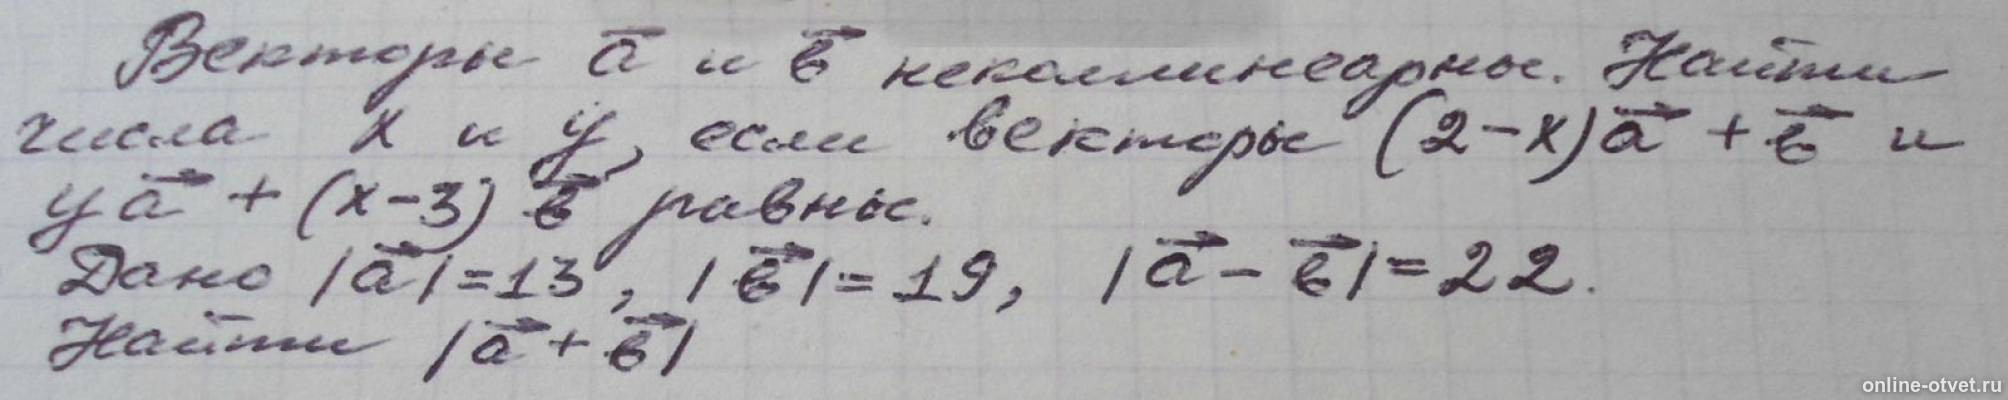 Векторы a⃗ и b⃗ неколлинеарны. Найти
числа x и y, если векторы (2-x)a⃗ + b⃗ и
ya⃗ + (x-3) b⃗ равны.
Дано |a⃗|=13, |b⃗|=19, |a⃗ - b⃗|=22.
Найти |a⃗ + b⃗|
online-otvet.ru